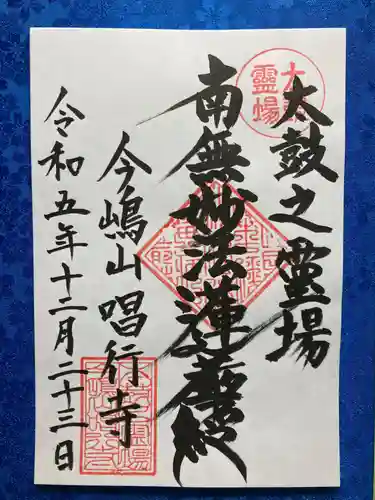 太鼓之靈場
南無妙法蓮華経
今嶋山 唱行寺
令和五年十二月二十三日